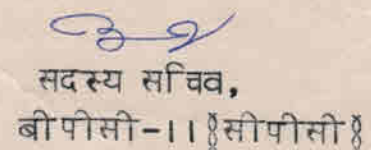 सदस्य सचिव,
बीपीसी-11§सीपीसी§